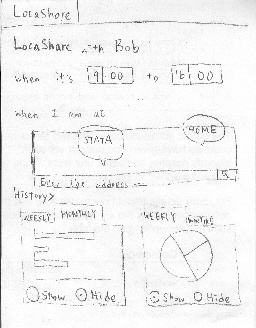 LocaShare
LocaShare with Bob
when it's 9:00 to 16:00
when I am at
HOME
STATA
Enter the address
History>
WEEKLY MONTHLY WEEKLY MONTHLY
Show Hide Show Hide